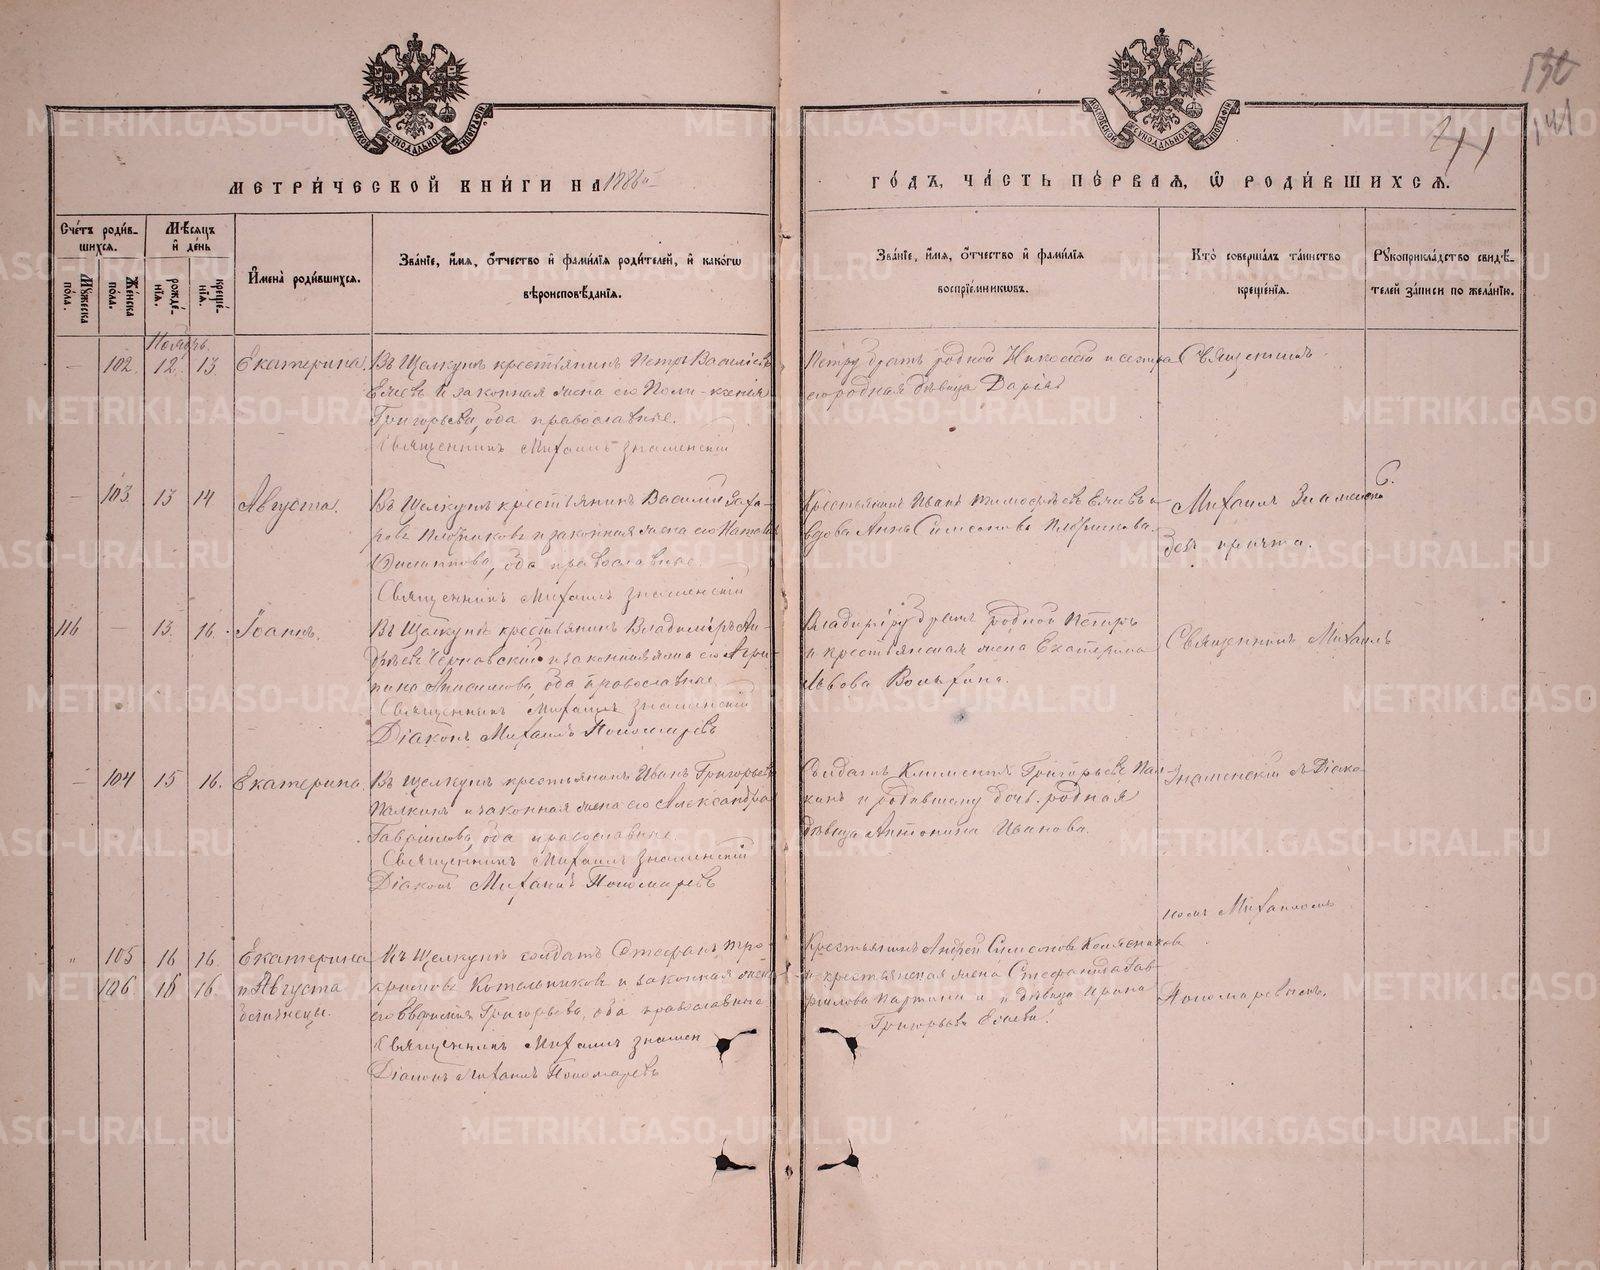 130
141
41
МОСКОВСКОЙ СѴНОДАЛЬНОЙ ТИПОГРАФІИ
МОСКОВСКОЙ СѴНОДАЛЬНОЙ ТИПОГРАФІИ
МЕТРИ́ЧЕСКОЙ КНИ́ГИ НА 1886й
ГО́ДЪ, ЧА́СТЬ ПЕ́РВАЯ, Ѡ РОДИ́ВШИХСЯ.
Сче́тъ роди́в-
шихся.
Мꙋ́жеска по́ла.
Же́нска по́ла.
Мѣ́сяцъ
и҆ де́нь
рожде́-
нїя.
креще́-
нїя.
И҆мена̀ роди́вшихся.
Зва́нїе, и҆́мя, ѻ҆́тчество и҆ фами́лїя роди́телей, и҆ како́гѡ
вѣроисповѣ́данїя.
Зва́нїе, и҆́мя, ѻ҆́тчество и҆ фами́лїя
воспрїе́мникѡвъ.
Кто̀ соверша́лъ та́инство
креще́нїя.
Рꙋкоприкла́дство свидѣ́-
телей за́писи по жела́нїю.
Ноябрь.
— 102. 12. 13. Екатерина. Въ Щелкунѣ крестьянинъ Петръ Василіевъ
Елчевъ и законная жена его Поли-ксенія
Григорьева, оба православные.
Священникъ Михаилъ Знаменскій
Петру братъ родной Николай и сестра
его родная дѣвица Дарія
Священникъ
— 103. 13 14 Августа. Въ Щелкунѣ крестьянинъ Василій Заха-
ровъ Плотниковъ и законная жена его Наталія
Филиппова, оба православные.
Священникъ Михаилъ Знаменскій
Крестьянинъ Иванъ Тимофѣевъ Елчевъ и
вдова Анна Симеонова Плотникова.
Михаилъ Знаменскій
безъ причта.
116 — 13. 16. Іоаннъ. Въ Щелкунѣ крестьянинъ Владиміръ Ан-
дрѣевъ Черновскій и законная жена его Агрип-
пина Анисимова, оба православные
Священникъ Михаилъ Знаменскій
Діаконъ Михаилъ Пономаревъ
Владиміру братъ родной Петръ
и крестьянская жена Екатерина
Львова
Священникъ Михаилъ
— 104 15 16. Екатерина. Въ Щелкунѣ крестьянинъ Иванъ Григорьевъ
Палкинъ и законная жена его Александра
Гавріилова, оба православные
Священникъ Михаилъ Знаменскій
Діаконъ Михаилъ Пономаревъ
Солдатъ Климентъ Григорьевъ Пал-
кинъ и родившему дочь родная
дѣвица Антонина Иванова.
Знаменскій съ Діако-
номъ Михаиломъ
Пономаревымъ.
" 105 16 16. Екатерина
106 16 16. и Августа
близнецы.
Въ Щелкунѣ солдатъ Стефанъ Тро-
фимовъ Котельниковъ и законная жена
его Евфимія Григорьева, оба православные
Священникъ Михаилъ Знамен
Діаконъ Михаилъ Пономаревъ
Крестьянинъ Андрей Симеоновъ
и крестьянская жена Стефанида Гав-
риилова и дѣвица Ирина
Григорьева Елчева.
METRIKI.GASO-URAL.RU